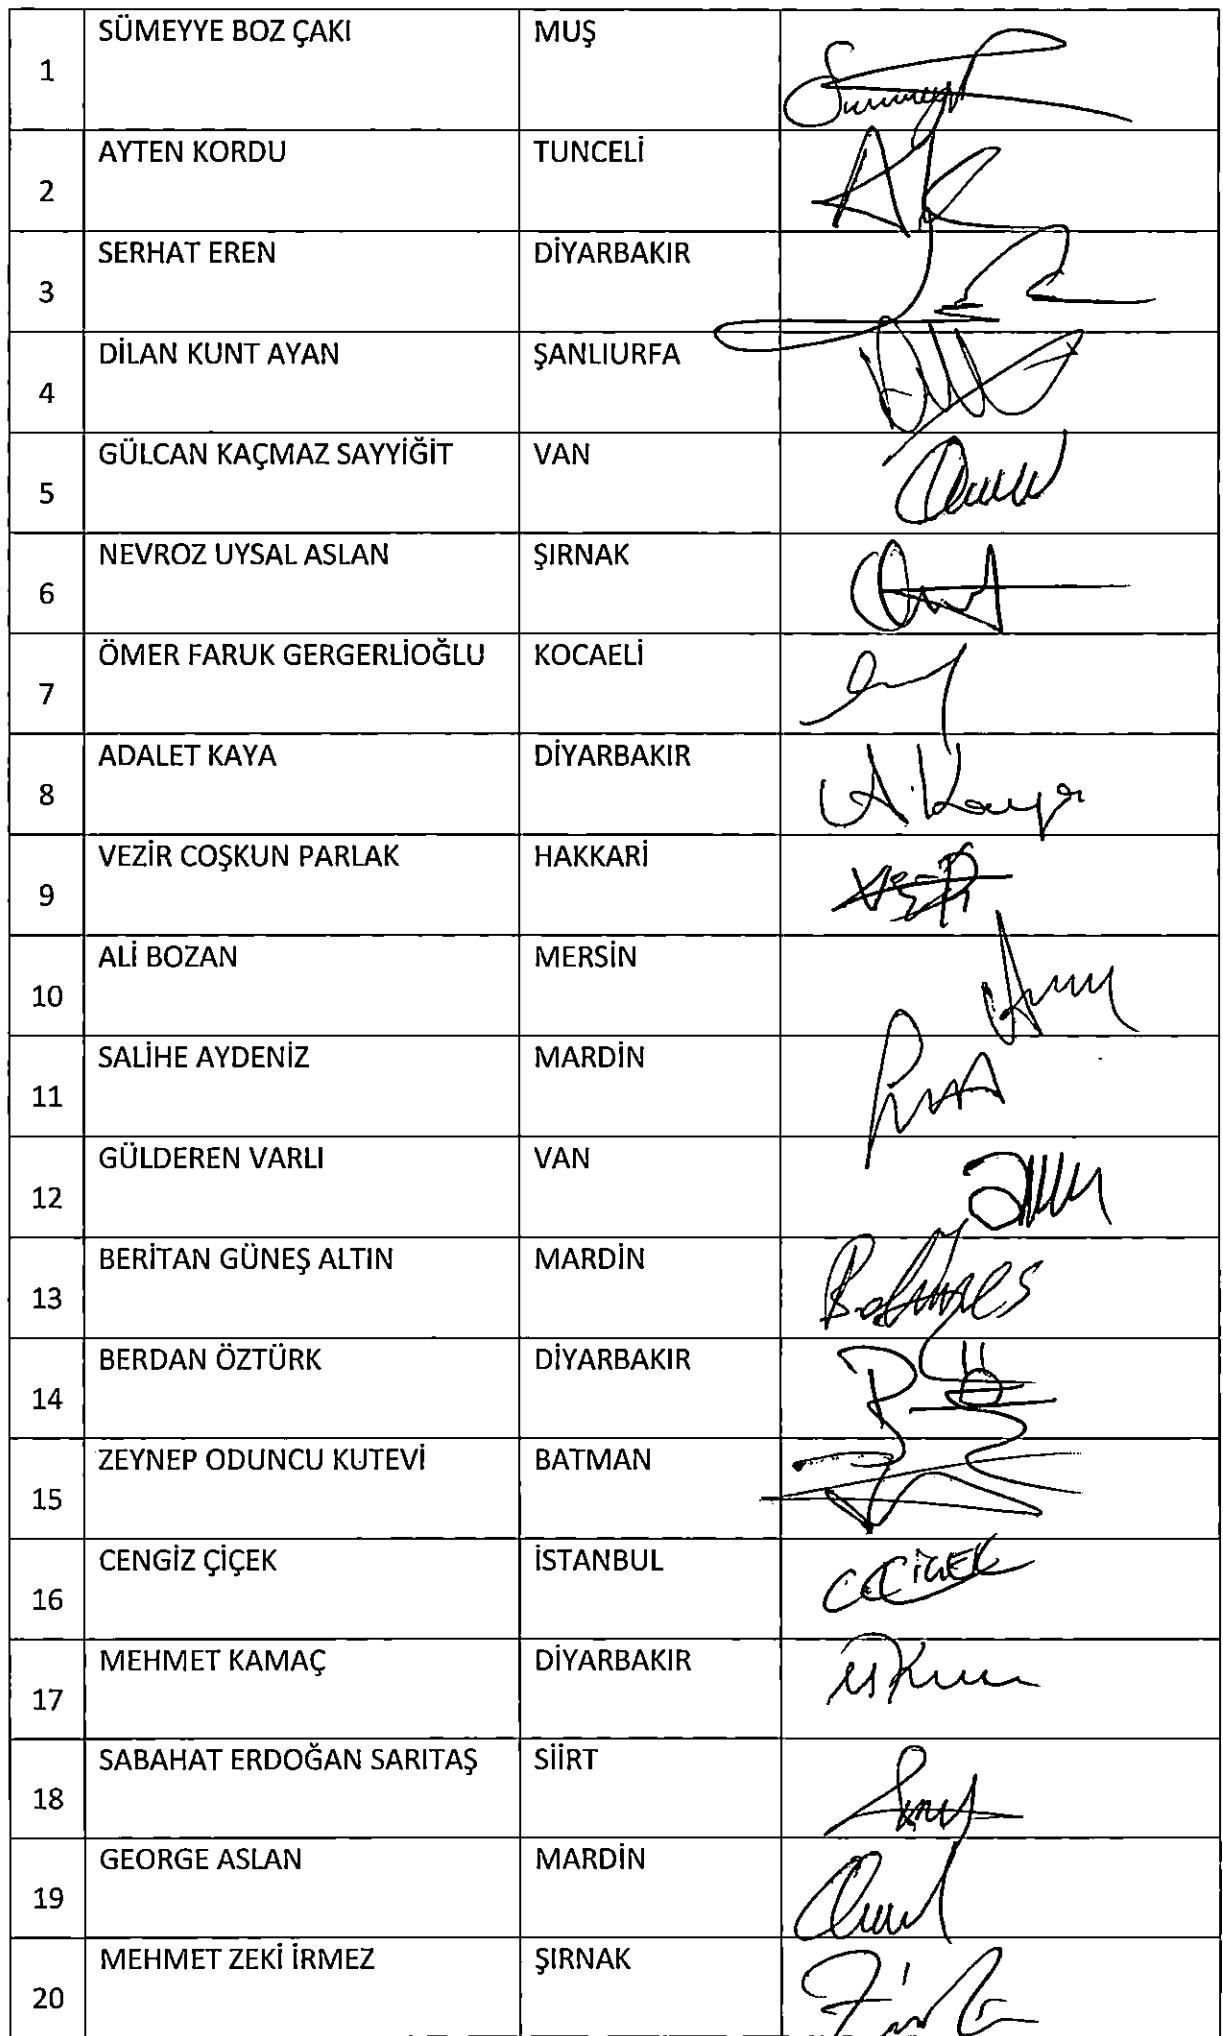 1 SÜMEYYE BOZ ÇAKI MUŞ
2 AYTEN KORDU TUNCELİ
3 SERHAT EREN DİYARBAKIR
4 DİLAN KUNT AYAN ŞANLIURFA
5 GÜLCAN KAÇMAZ SAYYİĞİT VAN
6 NEVROZ UYSAL ASLAN ŞIRNAK
7 ÖMER FARUK GERGERLİOĞLU KOCAELİ
8 ADALET KAYA DİYARBAKIR A.Kaya
9 VEZİR COŞKUN PARLAK HAKKARİ
10 ALİ BOZAN MERSİN
11 SALİHE AYDENİZ MARDİN
12 GÜLDEREN VARLI VAN
13 BERİTAN GÜNEŞ ALTIN MARDİN
14 BERDAN ÖZTÜRK DİYARBAKIR
15 ZEYNEP ODUNCU KUTEVİ BATMAN
16 CENGİZ ÇİÇEK İSTANBUL
17 MEHMET KAMAÇ DİYARBAKIR
18 SABAHAT ERDOĞAN SARITAŞ SİİRT
19 GEORGE ASLAN MARDİN
20 MEHMET ZEKİ İRMEZ ŞIRNAK